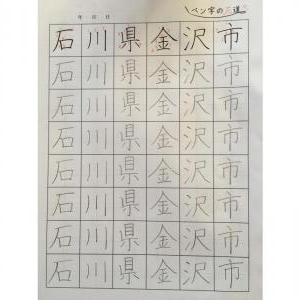 年 月 日
ペン字の道
石川県金沢市
石川県金沢市
石川県金沢市
石川県金沢市
石川県金沢市
石川県金沢市
石川県金沢市
石川県金沢市